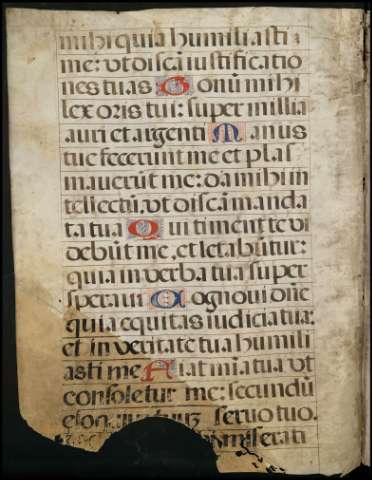 mihi quia humiliasti
me: vt discā iustificatio
nes tuas Bonū mihi
lex oris tui: super millia
auri et argenti Manus
tue fecerunt me et plas
mauerūt me: da mihi in
tellectū, vt discā manda
ta tua Qui timent te vi
debūt me, et letabūtur:
quia in verba tua super
speraui Cognoui dñe
quia equitas iudicia tua:
et in veritate tua humili
asti me Fiat mīa tua vt
consoletur me: secundū
eloq seruo tuo.
miserati